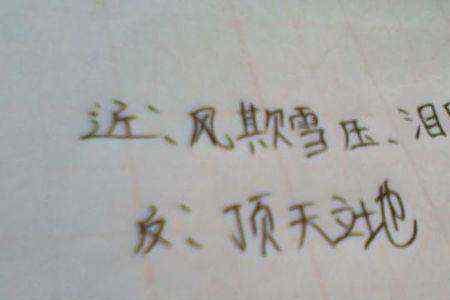 近:风欺雪压、泪
反:顶天立地